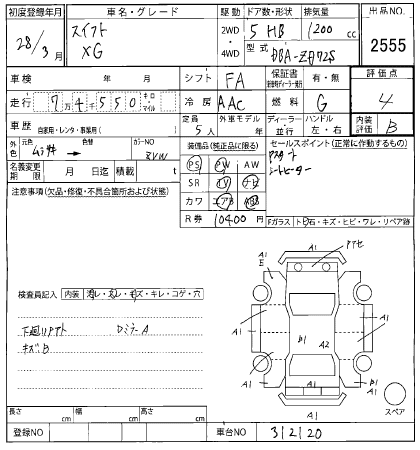 初度登録年月 車名・グレード 駆動 ドア数・形状 排気量 出品NO.
28/3月 スイフト XG 2WD 4WD 5 HB 1200 cc 2555
型式 DBA-ZC72S
車検 年 月 シフト FA 保証書 有・無 評価点
走行 7万4千550 キロ・マイル 冷房 AAC 燃料 G 4
車歴 自家用・レンタ・事業用( ) 定員 5人 外車モデル 年 ディーラー 並行 ハンドル 左・右 内装評価 B
外色 元色 色替 カラーNO ZVW 装備品(純正品に限る) セールスポイント(正常に作動するもの)
名義変更期限 月 日迄 積載 t PS PW AW シートヒーター
注意事項(欠品・修復・不具合箇所および状態) SR TV ナビ
カワ エアB ABS
R券 10400円 Fガラス トビ石・キズ・ヒビ・ワレ・リペア跡
A1 アアセ
A1 E A1
検査員記入 内装 汚レ・スレ・キズ・キレ・コゲ・穴
A1 A1
下廻りサフト Dミラー A B1 A2
キズ B
A1 B1 A1
A1 スペア
長さ cm 幅 cm 高さ cm
登録NO 車台NO 312120